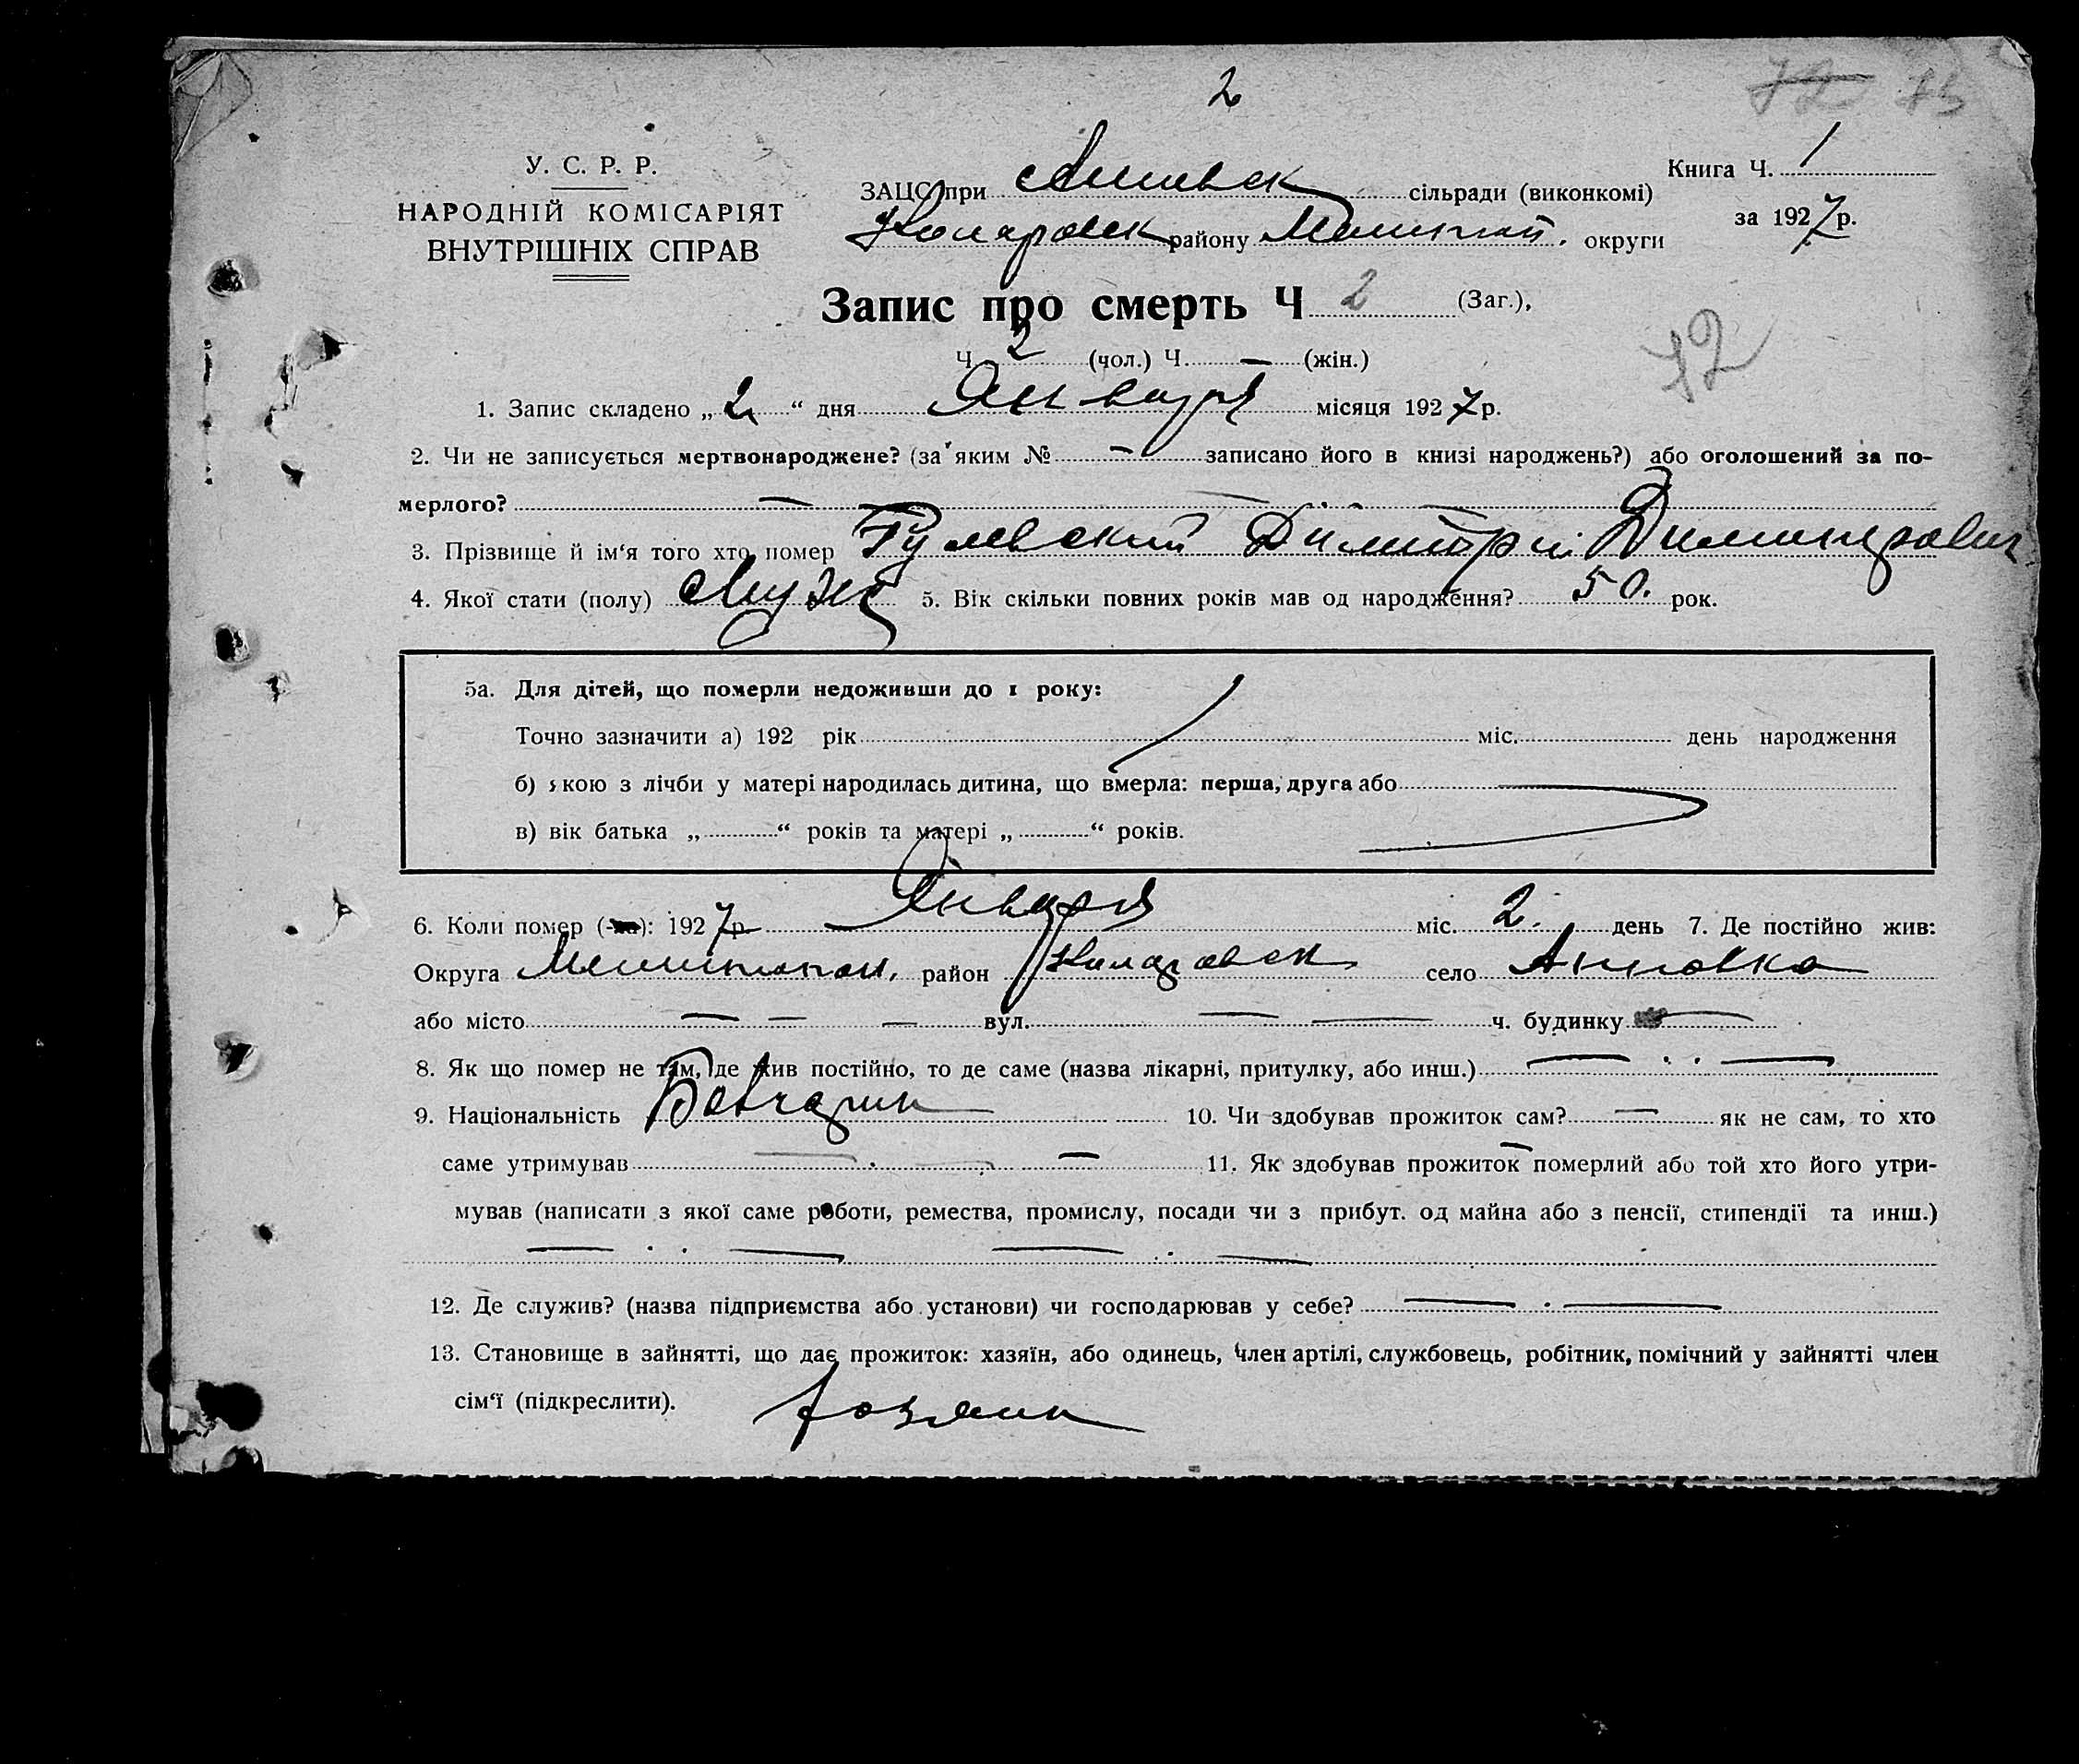 2
72 73
У. С. Р. Р.
НАРОДНІЙ КОМІСАРІЯТ
ВНУТРІШНІХ СПРАВ
ЗАЦС при Анновск сільради (виконкомі)
Коларовск району Мелитоп. округи
Книга Ч. 1
за 1927 р.
Запис про смерть Ч 2 (Заг.),
Ч 2 (чол.) Ч. — (жін.)
12
1. Запис складено „2“ дня Января місяця 1927 р.
2. Чи не записується мертвонароджене? (за яким № — записано його в книзі народжень?) або оголошений за по-
мерлого? —
3. Прізвище й ім‘я того хто помер Гулевский Димитрий Димитрович
4. Якої стати (полу) Муж 5. Вік скільки повних років мав од народження? 50. рок.
5а. Для дітей, що померли недоживши до 1 року:
Точно зазначити а) 192 рік міс. день народження
б) якою з лічби у матері народилась дитина, що вмерла: перша, друга або
в) вік батька „ “ років та матері „ “ років.
6. Коли помер (-ла): 1927 р. Января міс. 2. день 7. Де постійно жив:
Округа Мелитопол. район Коларовск село Анновка
або місто — — — вул. — — ч. будинку —
8. Як що помер не там, де жив постійно, то де саме (назва лікарні, притулку, або инш.) — . . —
9. Національність Болгарин 10. Чи здобував прожиток сам? — як не сам, то хто
саме утримував — . — — 11. Як здобував прожиток померлий або той хто його утри-
мував (написати з якої саме роботи, ремества, промислу, посади чи з прибут. од майна або з пенсії, стипендії та инш.)
— . . — — . . —
12. Де служив? (назва підприємства або установи) чи господарював у себе? — . —
13. Становище в зайнятті, що дає прожиток: хазяїн, або одинець, член артілі, службовець, робітник, помічний у зайнятті член
сім‘ї (підкреслити). хозяин